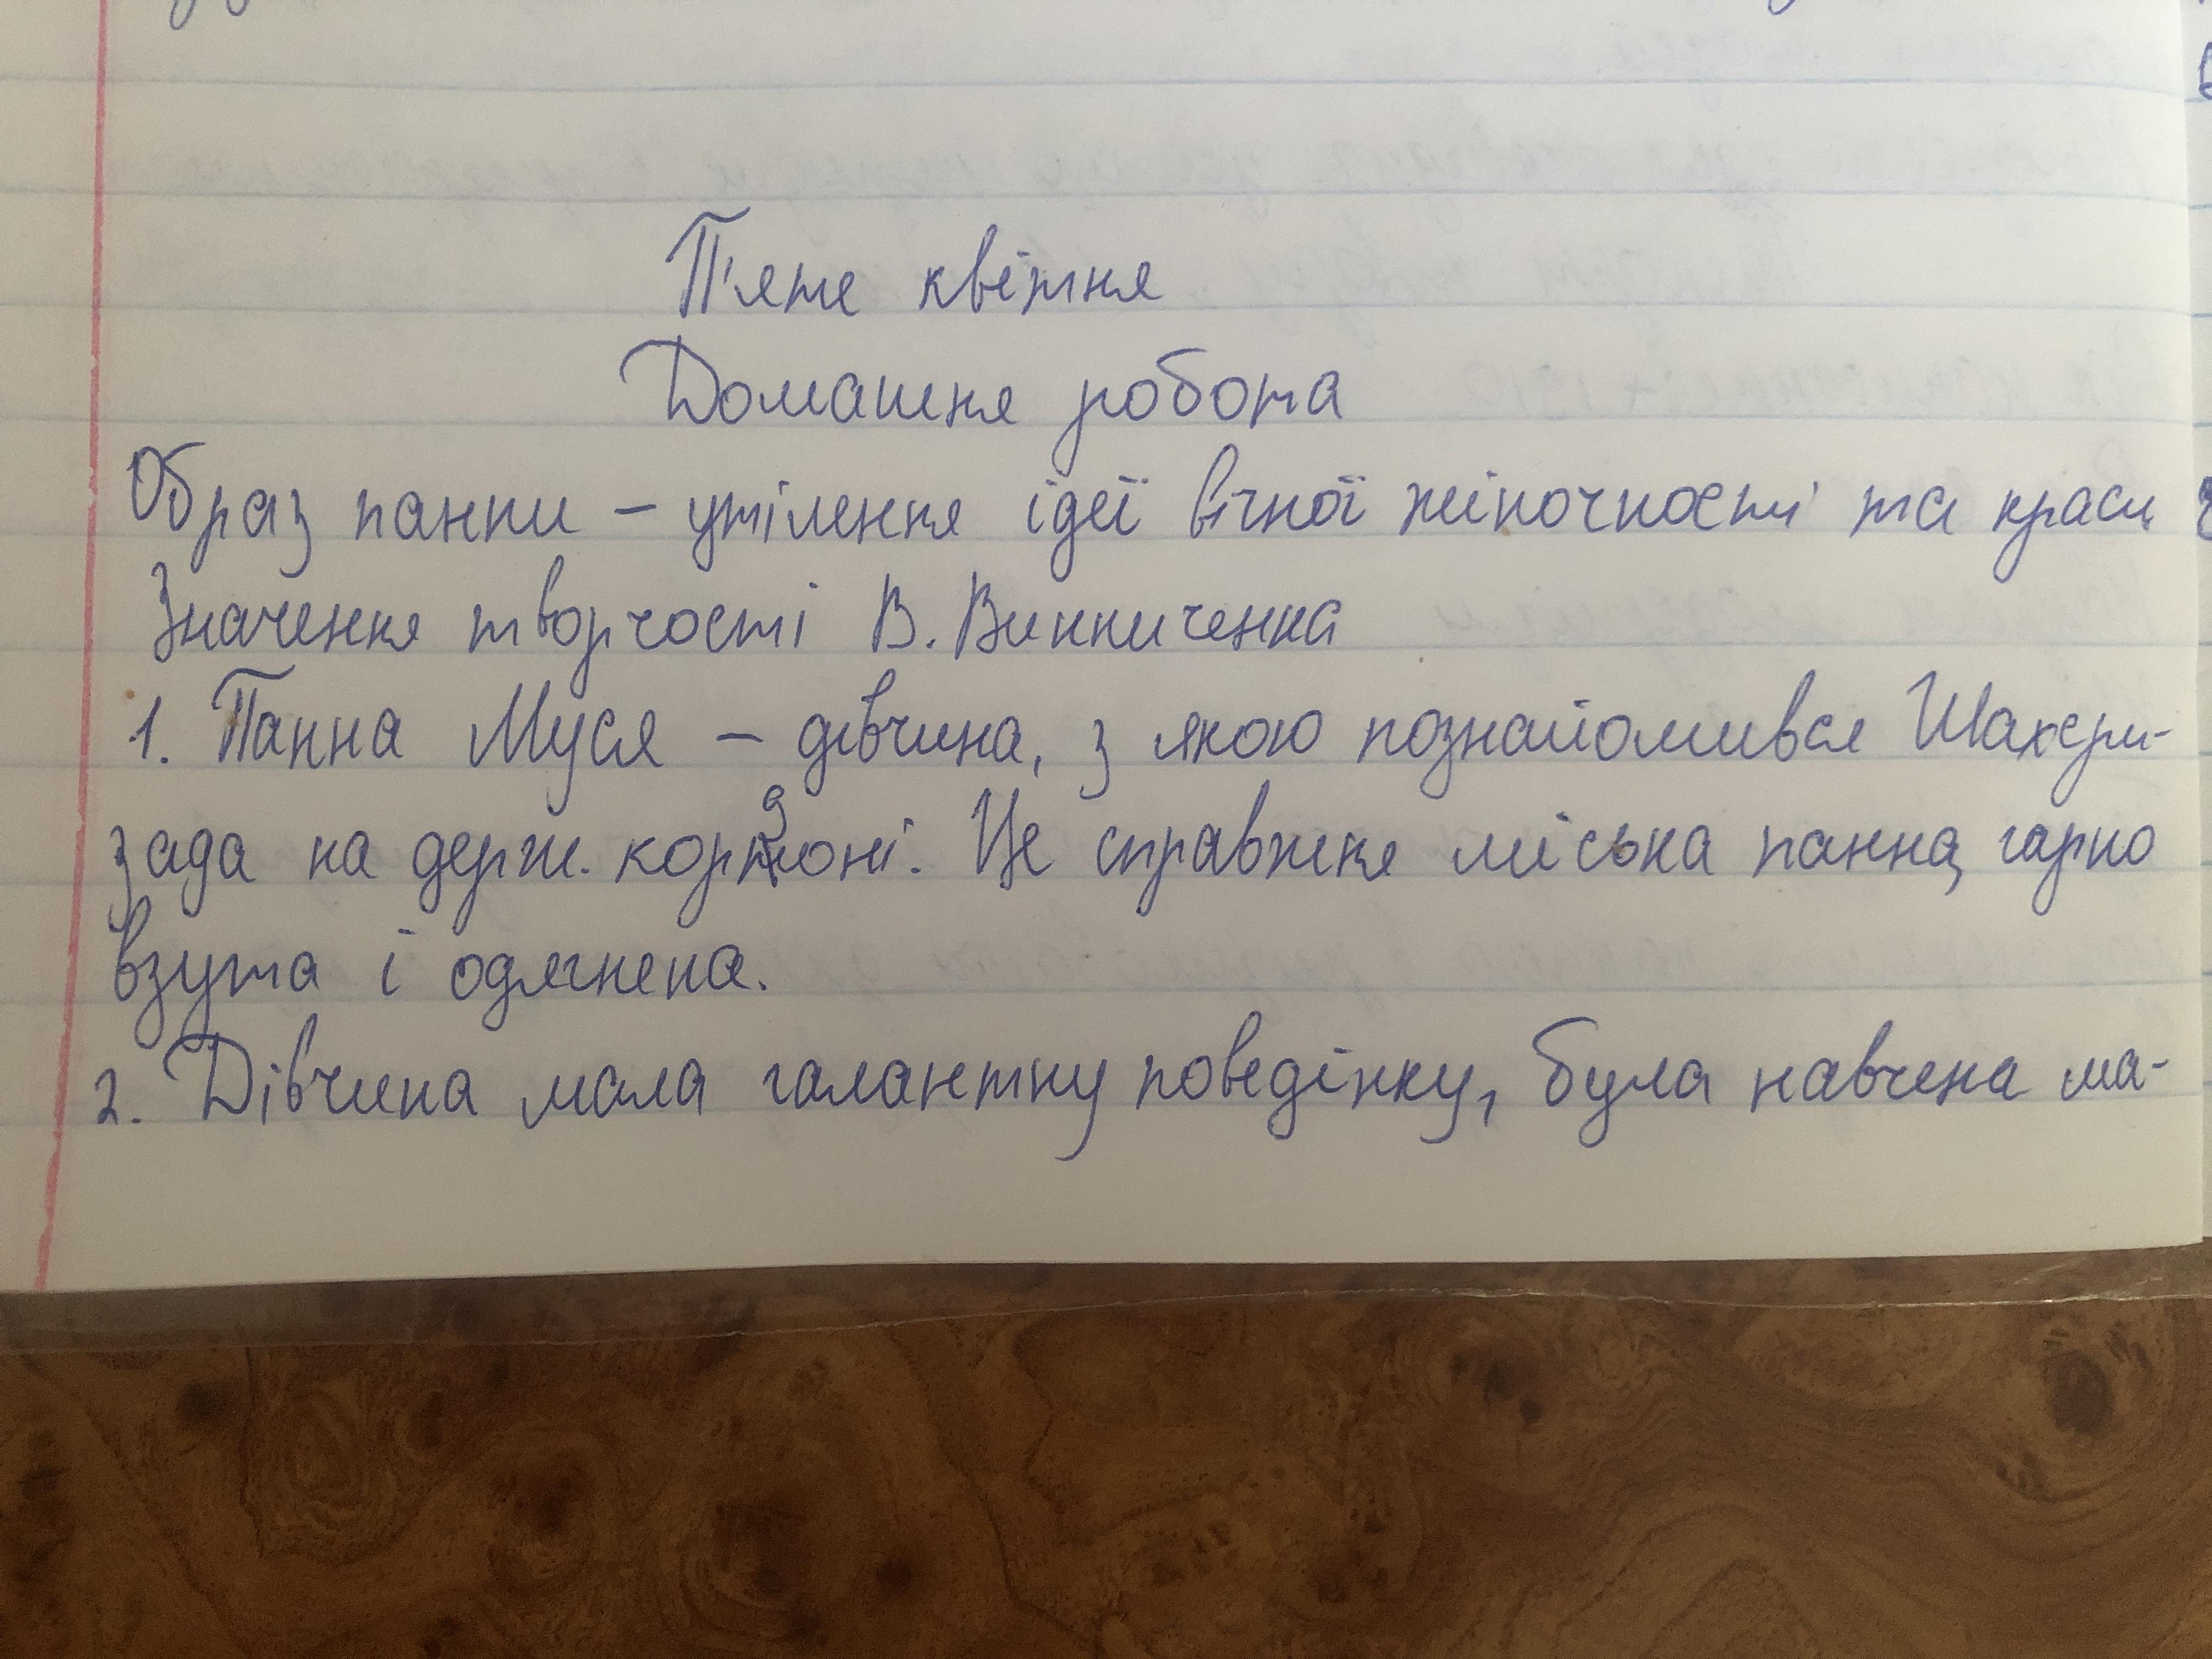 П'яте квітня
Домашня робота
Образ панни – утілення ідеї вічної жіночності та краси
Значення творчості В. Винниченка
1. Панна Муся – дівчина, з якою познайомився Шахери-
зада на держ. кордоні. Це справжня міська панна, гарно
взута і одягнена.
2. Дівчина мала галантну поведінку, була навчена ма-